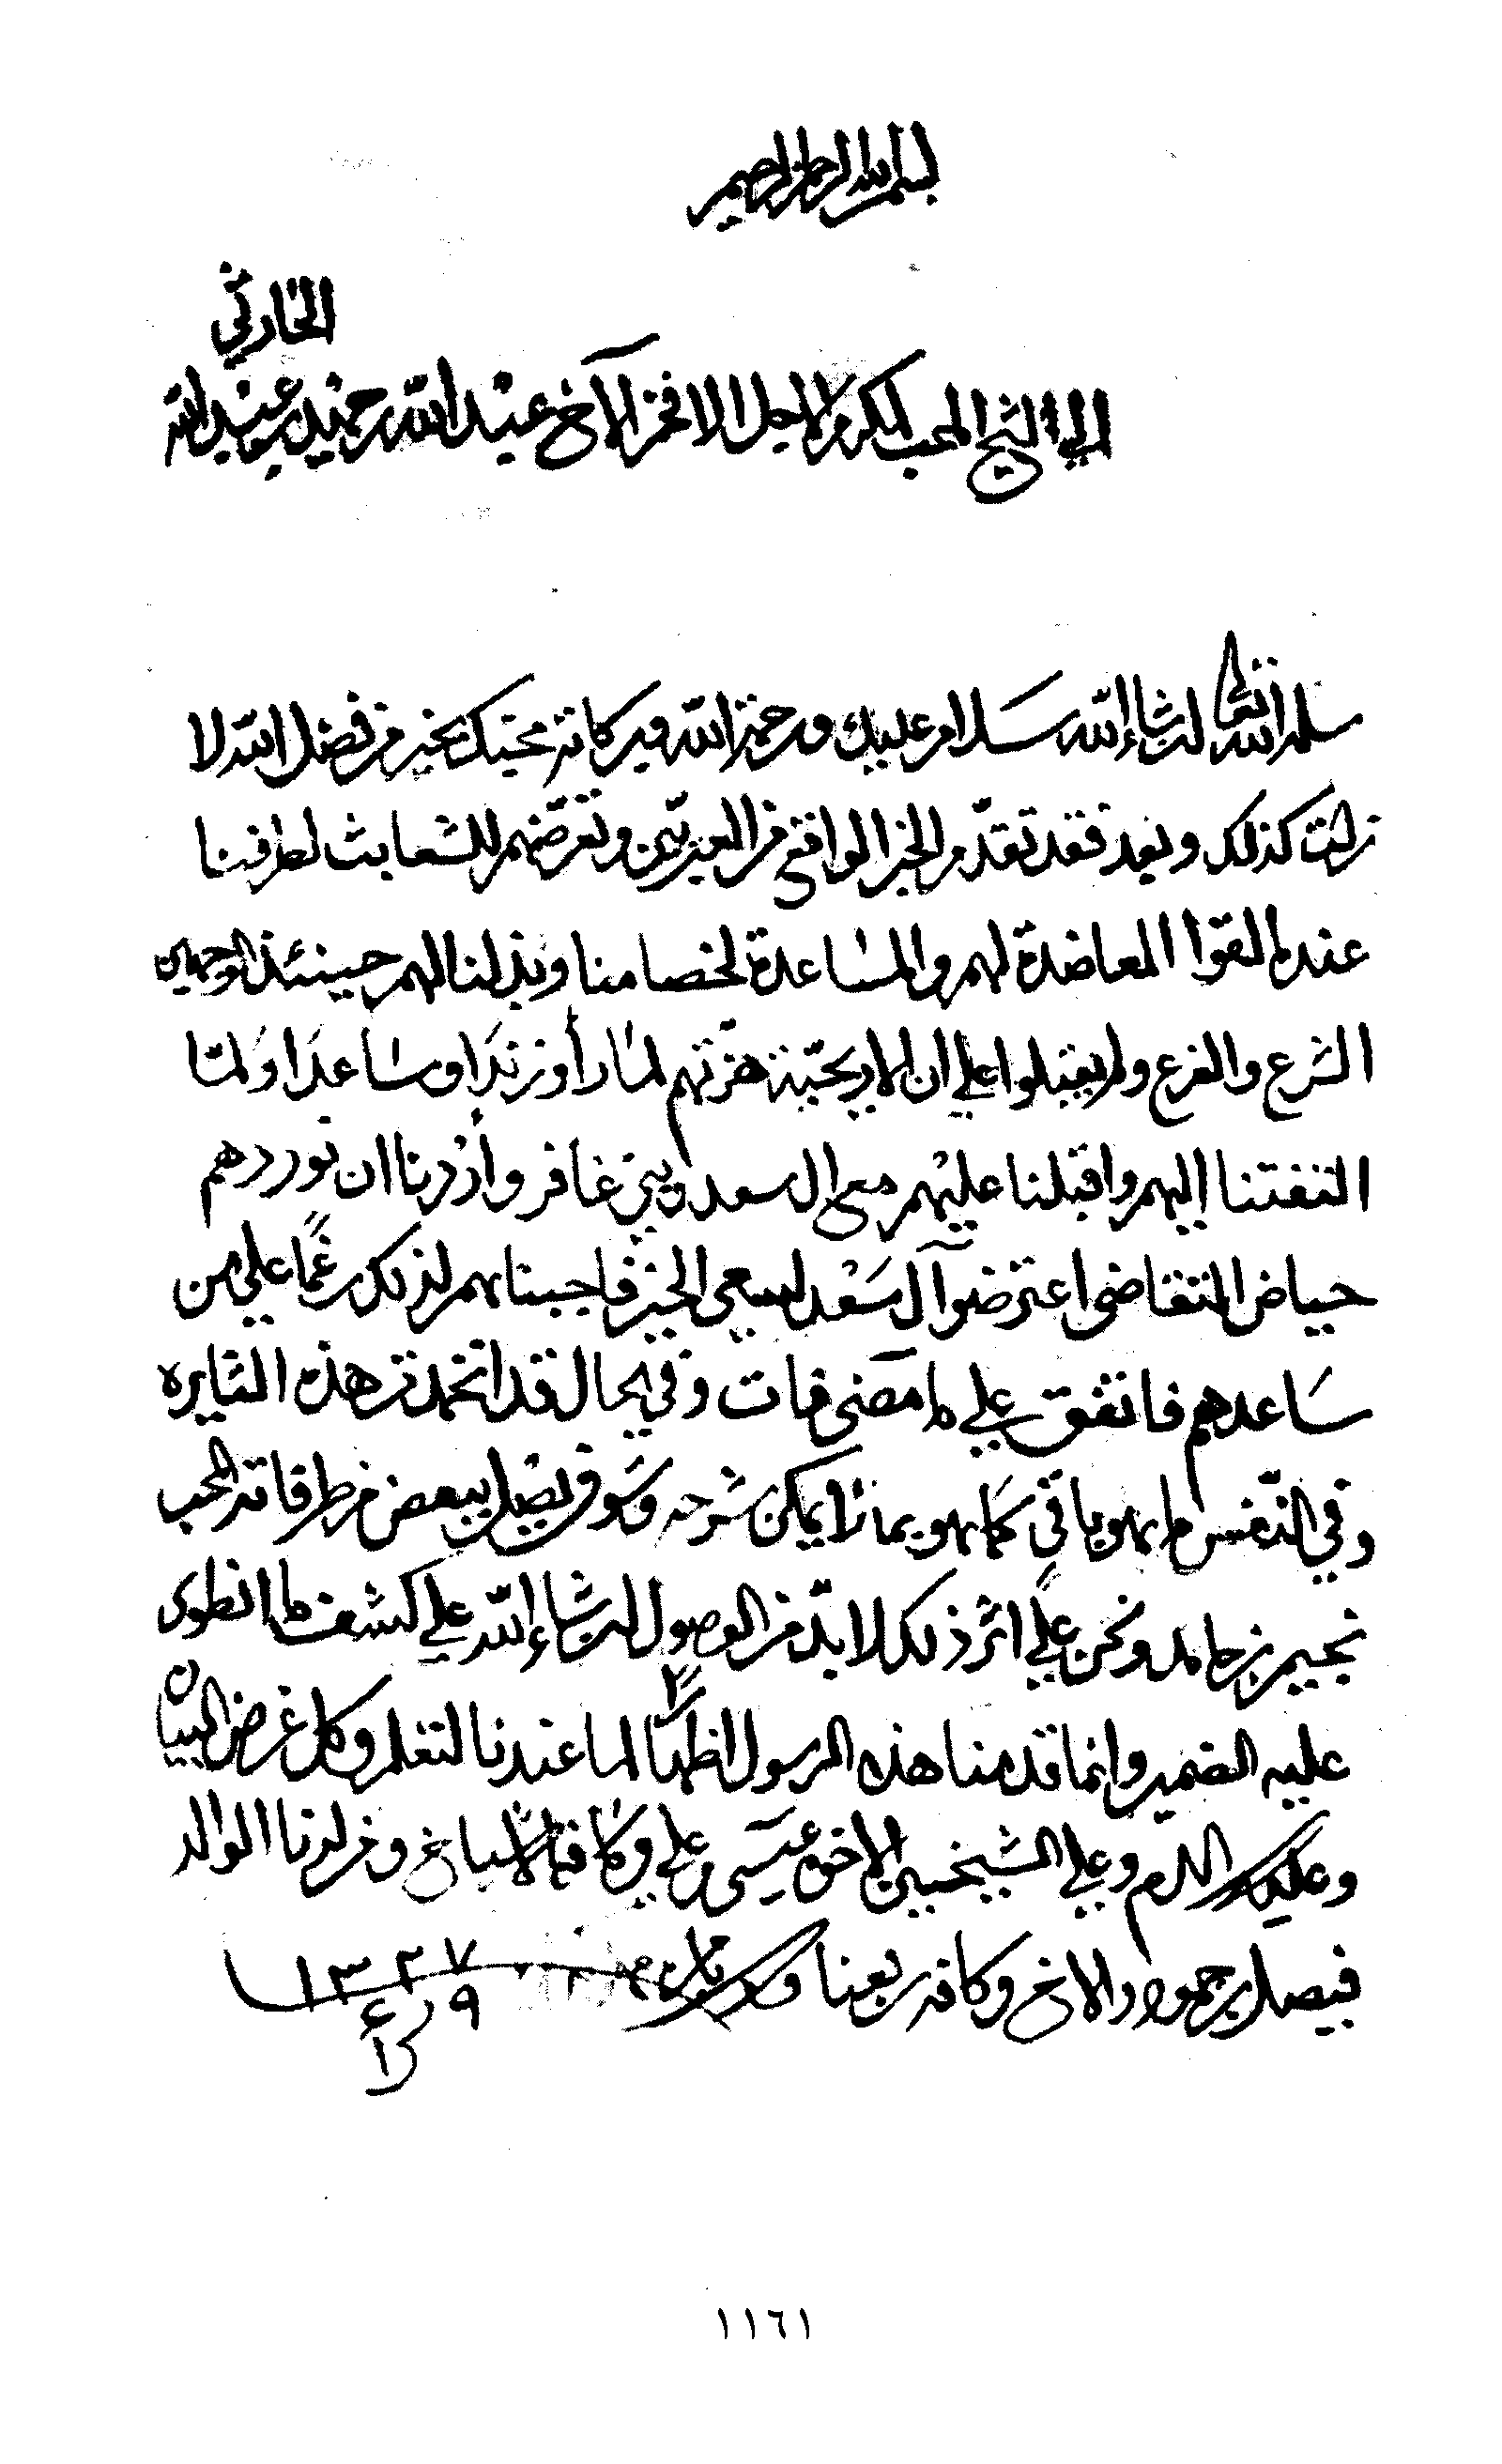 بسم الله الرحمن الرحيم
الحارثي
الى الشيخ المحب المكرم الاجل الافخر الأخ عبدالله بن حميد بن عبدالله
سلمه الله تعالى ان شاء الله سلام عليك ورحمة الله وبركاته محبك بخير من فضل الله لا
زلت كذلك وبعد فقد تقدم الخبر الواقع من العبريين وتعرضهم للشعابث لطرفنا
عند ما لقوا المعاضدة لهم والمساعدة لخصامنا وبذلنا لهم حينئذ الوجهين
الشرع والفرع ولم يقبلوا على ان هزتهم لما رأوا زندا وساعدا ولما
التفتنا إليهم واقبلنا عليهم مع ال سعد وبني غافر وأردنا ان نوردهم
حياض المتقاضى اعترضوا آل سعد لسعي الخير فاجبناهم لذلك رغما على من
ساعدهم فاتفق على ما مضى فات وفي الحال قد اتخمدت هذه الثايره
وفي النفس ما هو باقي كما هو بما لا يمكن شرحه وسوف يصل ببعض من طرفاته المحب
نجيم بن حامد ونحن على اثر ذلك لا بد من الوصول ان شاء الله على كشف ما انطوى
عليه الضمير وانما قدمنا هذه الرسول اظهارا لما عندنا لتعلم وكل غرض لمحبيك البيان
وعليك السلام وعلى الشيخين الاخوة عيسى وعلي وكافة الاشياخ ومن لدنا الوالد
فيصل بن حمود والاخ وكافة ربعنا
١٣٢٧
٩ ر ٤